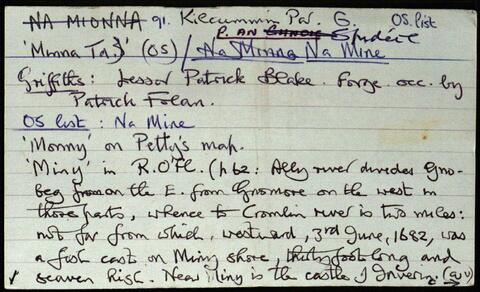 NA MIONNA 91. Kilcummin Par. G. OS. list
P. AN Spidéil
'Minna Td.' (OS) / Na Minna Na Mine
Griffiths: Lessor Patrick Blake. Forge. occ. by
Patrick Folan.
OS list: Na Mine
'Monny' on Petty's map.
'Miny' in R.O'Fl. (h 62: Ally river divides Gno-
beg from on the E. from Gnomore on the west in
those parts, whence to Cromlin river is two miles:
not far from which, westward, 3rd June, 1682, was
a fish cast on Miny shore, thirty foot long and
seaven high. Near Miny is the castle of Inverin. (q.v)